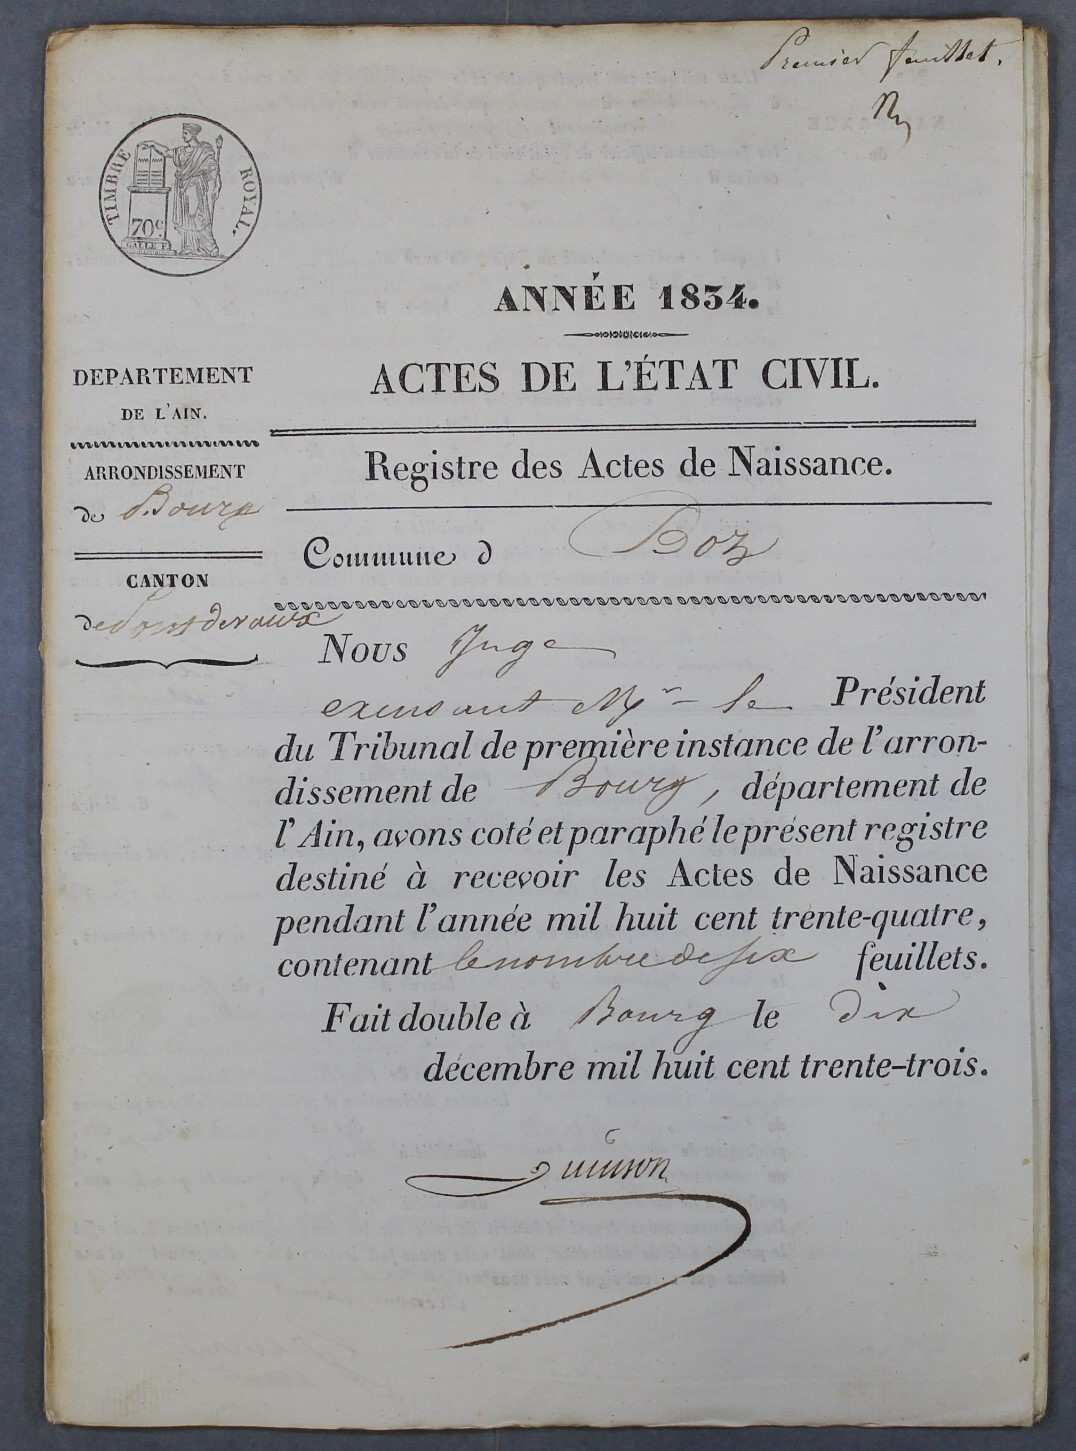 Premier feuillet.
TIMBRE ROYAL.
70c
GALLE F.
ANNÉE 1834.
DEPARTEMENT
DE L'AIN.
ARRONDISSEMENT
de Bourg
CANTON
de Pont devaux
ACTES DE L'ÉTAT CIVIL.
Registre des Actes de Naissance.
Commune d Boz
Nous Juge
excusant Mr le Président
du Tribunal de première instance de l'arron-
dissement de Bourg, département de
l'Ain, avons coté et paraphé le présent registre
destiné à recevoir les Actes de Naissance
pendant l'année mil huit cent trente-quatre,
contenant le nombre de six feuillets.
Fait double à Bourg le dix
décembre mil huit cent trente-trois.